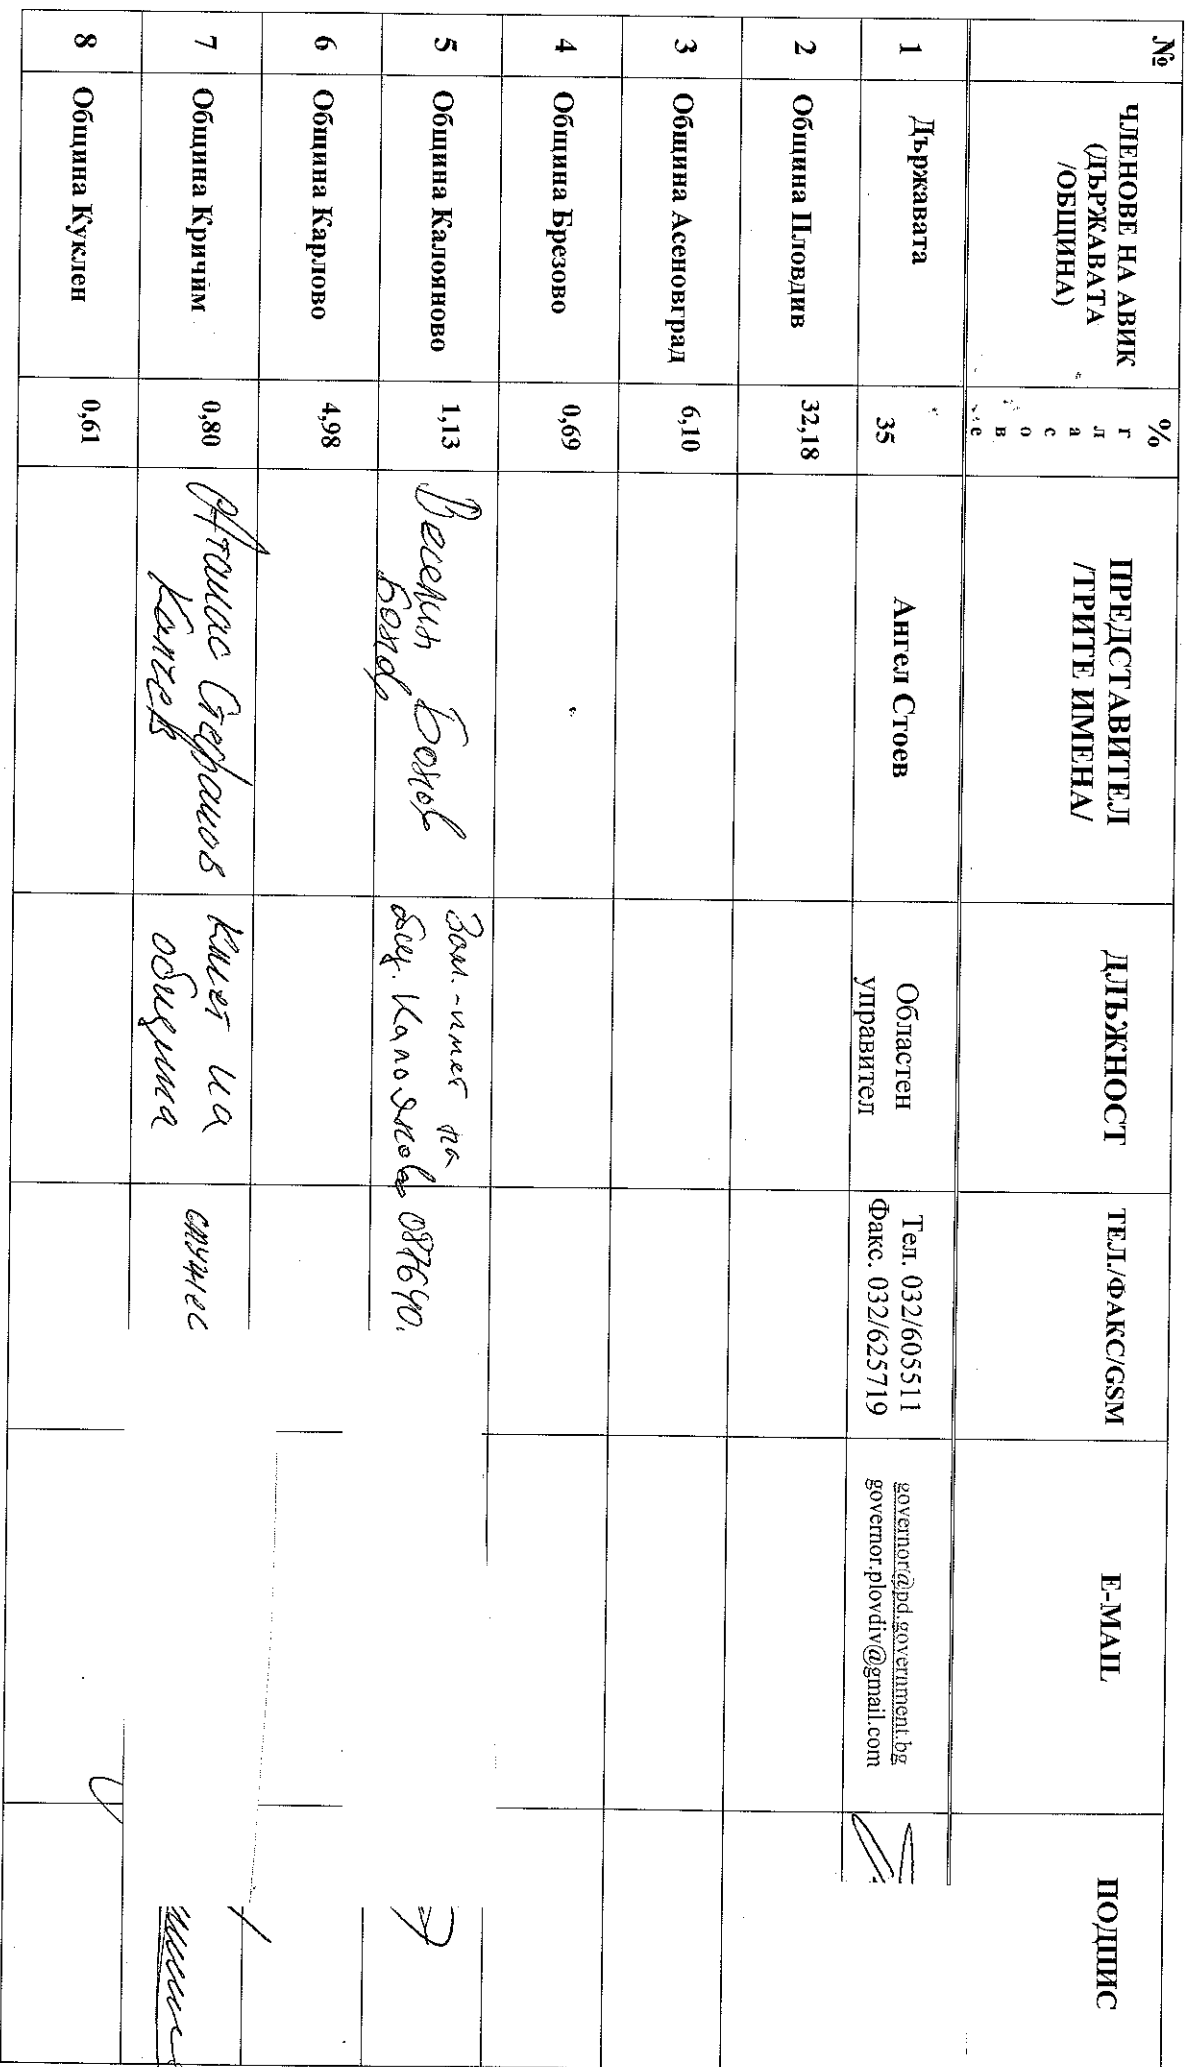 №
ЧЛЕНОВЕ НА АВИК
(ДЪРЖАВАТА
/ОБЩИНА)
%
гласове
ПРЕДСТАВИТЕЛ
/ТРИТЕ ИМЕНА/
ДЛЪЖНОСТ
ТЕЛ./ФАКС/GSM
E-MAIL
ПОДПИС
1
Държавата
35
Ангел Стоев
Областен
управител
Тел. 032/605511
Факс. 032/625719
governor@pd.government.bg
governor.plovdiv@gmail.com
2
Община Пловдив
32,18
3
Община Асеновград
6,10
4
Община Брезово
0,69
5
Община Калояново
1,13
Веселин Божков
Зам.-кмет на
общ. Калояново
087640.
6
Община Карлово
4,98
7
Община Кричим
0,80
Атанас Стефанов
Калчев
Кмет на
община
8
Община Куклен
0,61